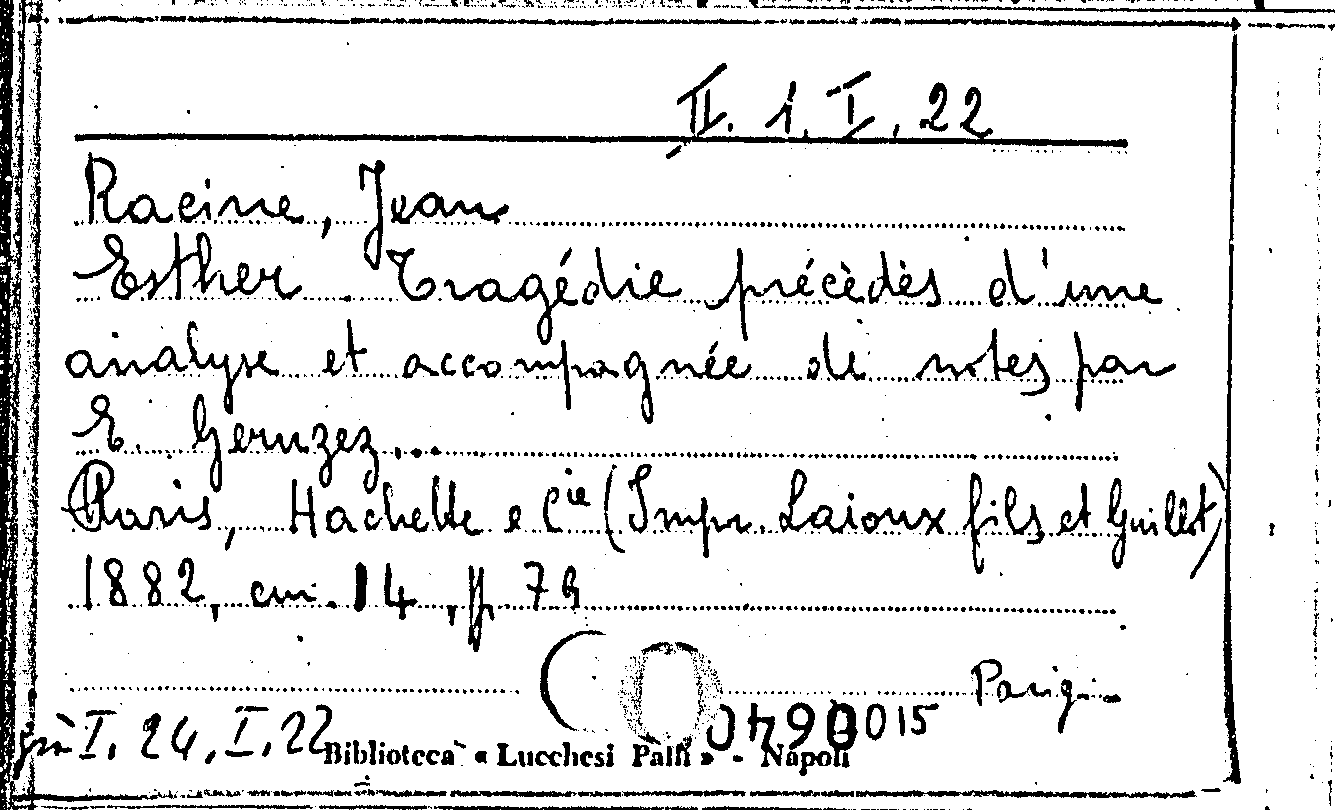 II. 1. I. 22
Racine, Jean
Esther. Tragédie précèdès d'une
analyse et accompagnée de notes par
E. Geruzez...
Paris, Hachette e Cie (Impr. Laioux fils et Guillot)
1882, cm. 14, p. 79
Parigi
già I. 24, I. 22
Biblioteca « Lucchesi Palli » - Napoli